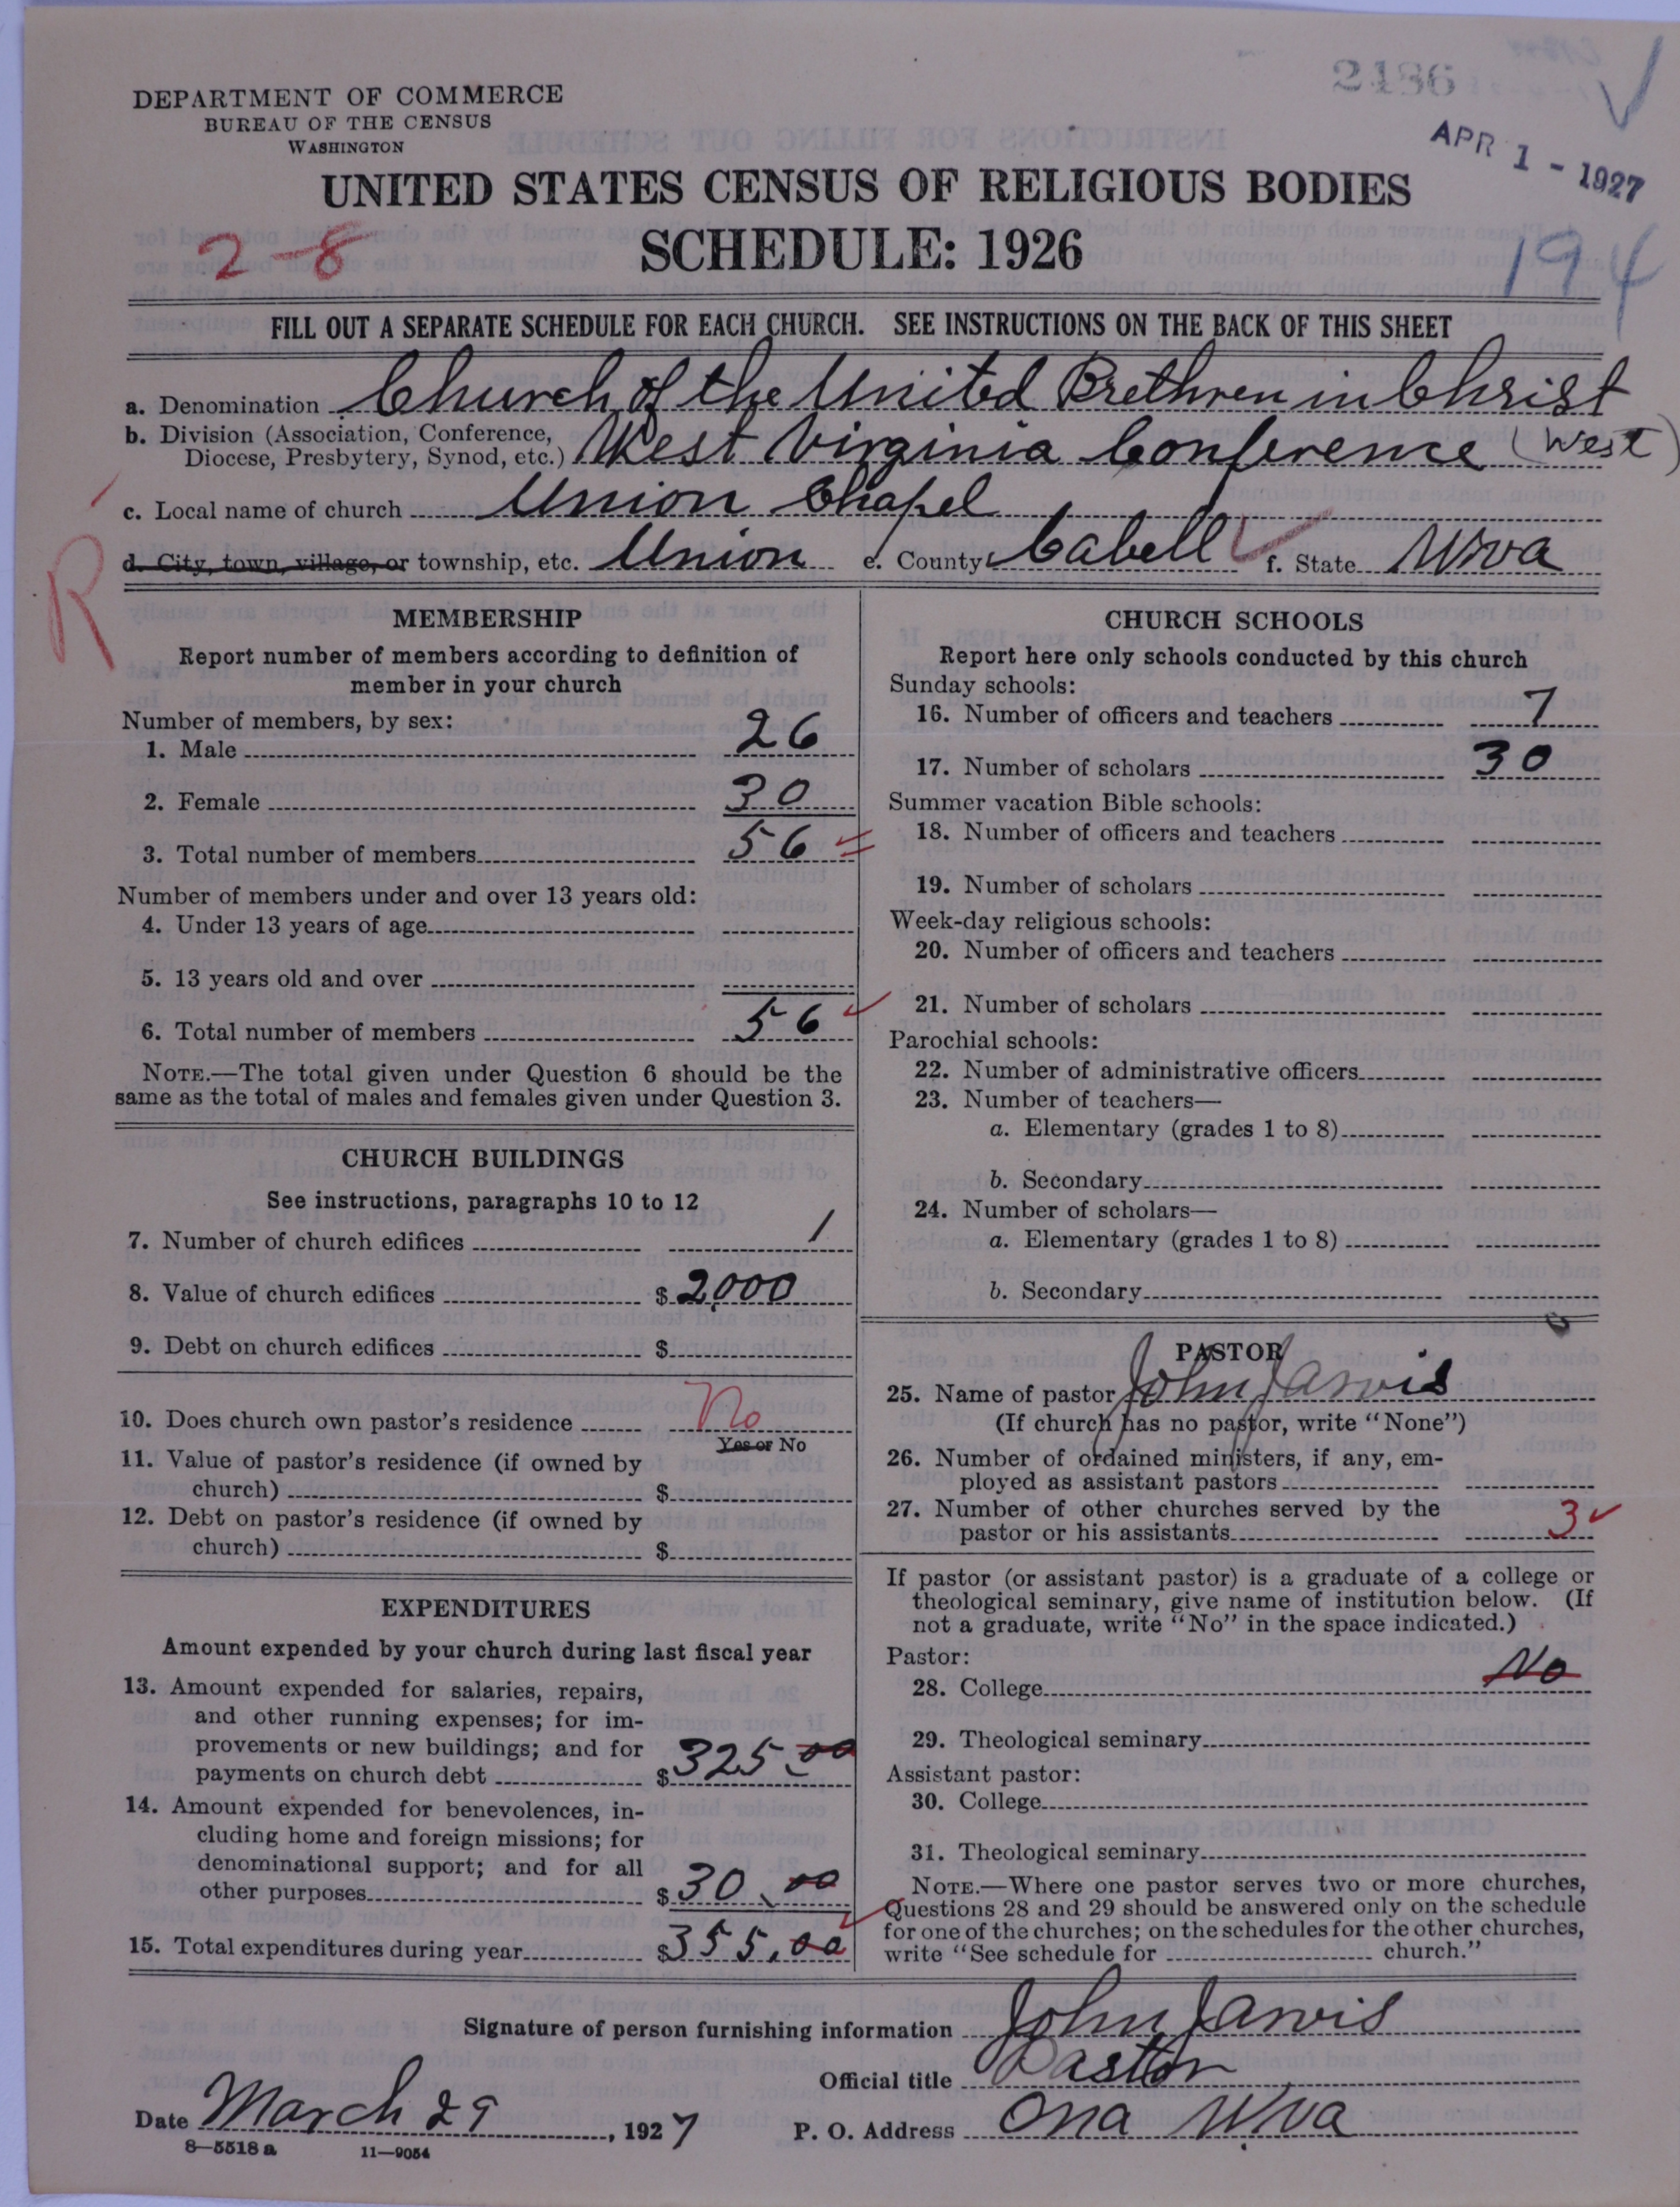 2486
APR 1 - 1927
DEPARTMENT OF COMMERCE
BUREAU OF THE CENSUS
WASHINGTON
UNITED STATES CENSUS OF RELIGIOUS BODIES
SCHEDULE: 1926
2-8
194
FILL OUT A SEPARATE SCHEDULE FOR EACH CHURCH. SEE INSTRUCTIONS ON THE BACK OF THIS SHEET
a. Denomination Church of the United Brethren in Christ
b. Division (Association, Conference, Diocese, Presbytery, Synod, etc.) West Virginia Conference (West)
c. Local name of church Union Chapel
R
d. City, town, village, or township, etc. Union e. County Cabell f. State W Va
MEMBERSHIP
Report number of members according to definition of
member in your church
Number of members, by sex:
1. Male 26
2. Female 30
3. Total number of members 56
Number of members under and over 13 years old:
4. Under 13 years of age
5. 13 years old and over
6. Total number of members 56
NOTE.—The total given under Question 6 should be the
same as the total of males and females given under Question 3.
CHURCH BUILDINGS
See instructions, paragraphs 10 to 12
7. Number of church edifices 1
8. Value of church edifices $ 2,000
9. Debt on church edifices $
10. Does church own pastor's residence No
Yes or No
11. Value of pastor's residence (if owned by
church) $
12. Debt on pastor's residence (if owned by
church) $
EXPENDITURES
Amount expended by your church during last fiscal year
13. Amount expended for salaries, repairs,
and other running expenses; for im-
provements or new buildings; and for
payments on church debt $ 325.00
14. Amount expended for benevolences, in-
cluding home and foreign missions; for
denominational support; and for all
other purposes $ 30.00
15. Total expenditures during year $ 355.00
CHURCH SCHOOLS
Report here only schools conducted by this church
Sunday schools:
16. Number of officers and teachers 7
17. Number of scholars 30
Summer vacation Bible schools:
18. Number of officers and teachers
19. Number of scholars
Week-day religious schools:
20. Number of officers and teachers
21. Number of scholars
Parochial schools:
22. Number of administrative officers
23. Number of teachers—
a. Elementary (grades 1 to 8)
b. Secondary
24. Number of scholars—
a. Elementary (grades 1 to 8)
b. Secondary
PASTOR
25. Name of pastor John Jarvis
(If church has no pastor, write "None")
26. Number of ordained ministers, if any, em-
ployed as assistant pastors
27. Number of other churches served by the
pastor or his assistants 3
If pastor (or assistant pastor) is a graduate of a college or
theological seminary, give name of institution below. (If
not a graduate, write "No" in the space indicated.)
Pastor:
28. College No
29. Theological seminary
Assistant pastor:
30. College
31. Theological seminary
NOTE.—Where one pastor serves two or more churches,
Questions 28 and 29 should be answered only on the schedule
for one of the churches; on the schedules for the other churches,
write "See schedule for church."
Signature of person furnishing information John Jarvis
Official title Pastor
Date March 29, 1927 P. O. Address Ona W Va
8—5518 a 11—9054